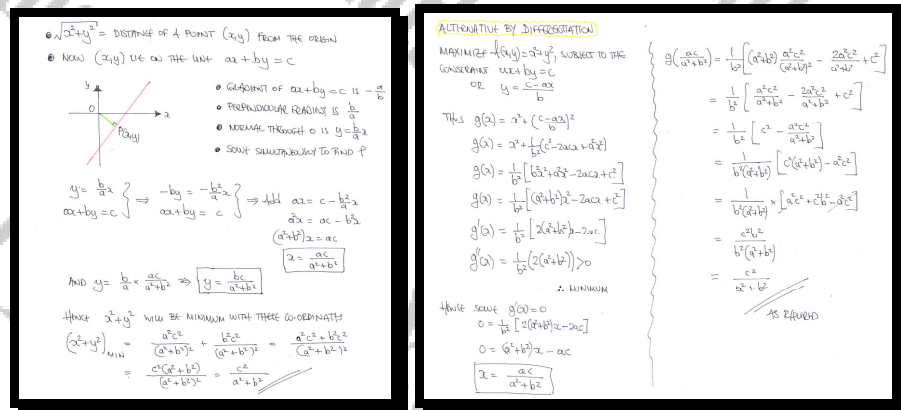 • √x²+y² = DISTANCE OF A POINT (x,y) FROM THE ORIGIN
• NOW (x,y) LIE ON THE LINE ax + by = c
y
O
x
P(x,y)
• GRADIENT OF ax+by = c IS -a/b
• PERPENDICULAR GRADIENT IS b/a
• NORMAL THROUGH O IS y = b/a x
• SOLVE SIMULTANEOUSLY TO FIND P
y = b/a x
ax+by = c } ⇒ -by = -b²/a x
ax+by = c } ⇒ Add ax = c - b²/a x
a²x = ac - b²x
(a²+b²)x = ac
x = ac/(a²+b²)
AND y = b/a × ac/(a²+b²) ⇒ y = bc/(a²+b²)
HENCE x²+y² WILL BE MINIMUM WITH THESE CO-ORDINATES
(x²+y²)MIN = a²c²/(a²+b²)² + b²c²/(a²+b²)² = (a²c²+b²c²)/(a²+b²)²
= c²(a²+b²)/(a²+b²)² = c²/(a²+b²)
ALTERNATIVE BY DIFFERENTIATION
MAXIMIZE f(x,y) = x²+y², SUBJECT TO THE
CONSTRAINT ax+by = c
OR y = (c-ax)/b
THUS g(x) = x² + ((c-ax)/b)²
g(x) = x² + 1/b² (c² - 2acx + a²x²)
g(x) = 1/b² [b²x² + a²x² - 2acx + c²]
g(x) = 1/b² [(a²+b²)x² - 2acx + c²]
g'(x) = 1/b² [2(a²+b²)x - 2ac]
g''(x) = 1/b² (2(a²+b²)) > 0
∴ MINIMUM
HENCE SOLVE g'(x) = 0
0 = 1/b² [2(a²+b²)x - 2ac]
0 = (a²+b²)x - ac
x = ac/(a²+b²)
g(ac/(a²+b²)) = 1/b² [(a²+b²) a²c²/(a²+b²)² - 2a²c²/(a²+b²) + c²]
= 1/b² [a²c²/(a²+b²) - 2a²c²/(a²+b²) + c²]
= 1/b² [c² - a²c²/(a²+b²)]
= 1/(b²(a²+b²)) [c²(a²+b²) - a²c²]
= 1/(b²(a²+b²)) × [a²c² + c²b² - a²c²]
= c²b²/(b²(a²+b²))
= c²/(a²+b²)
AS REQUIRED